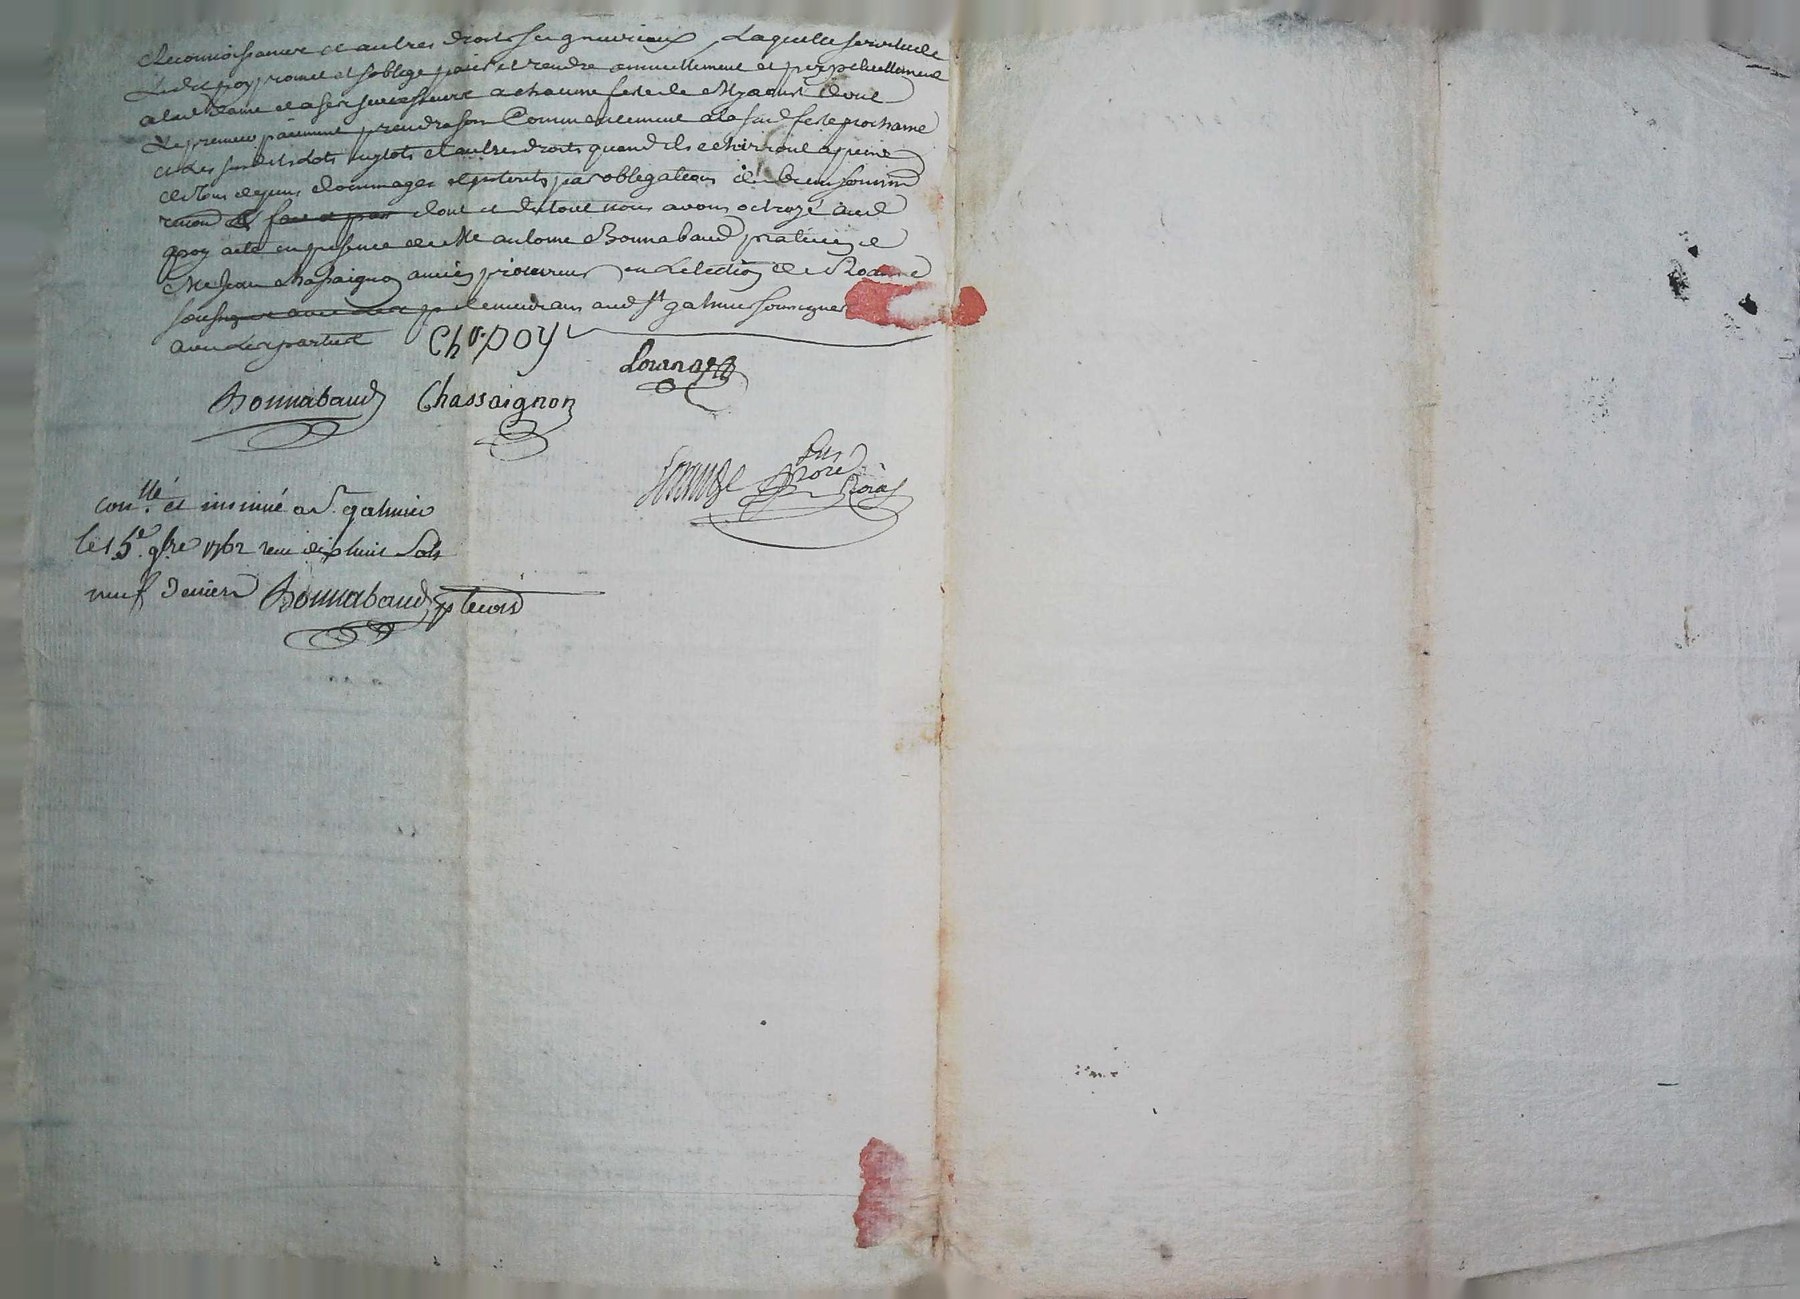 Reconnoissance et autres droits seigneuriaux, Laquelle servitude
Ledit poy promet et soblige paier et rendre annuellement et perpetuellement
a lad. Dame et a ses successeurs a chacune feste de My aoust dont
Le premier paiement prendra son Commencement a la sud. feste prochaine
et Les susdits Lots mylots et autres droits quand ils echeiront a peine
de tous depens dommages et interets par obligations de biens soumis
renon fait et passé dont et du tout nous avons octroyé aud.
poy acte en presence de Me antoine Bonnabaud praticien et
Me Jean chassaignon ancien procureur en Lelection de Roanne
soussignes avec Les demeurans aud. St galmier soussignes
avec Les parties
Ch. POY
Bonnabaud Chassaignon
conlle. et insinué a St. galmier
le 15e. 9bre 1762 reçu dix huit Sols
neuf deniers Bonnabaud